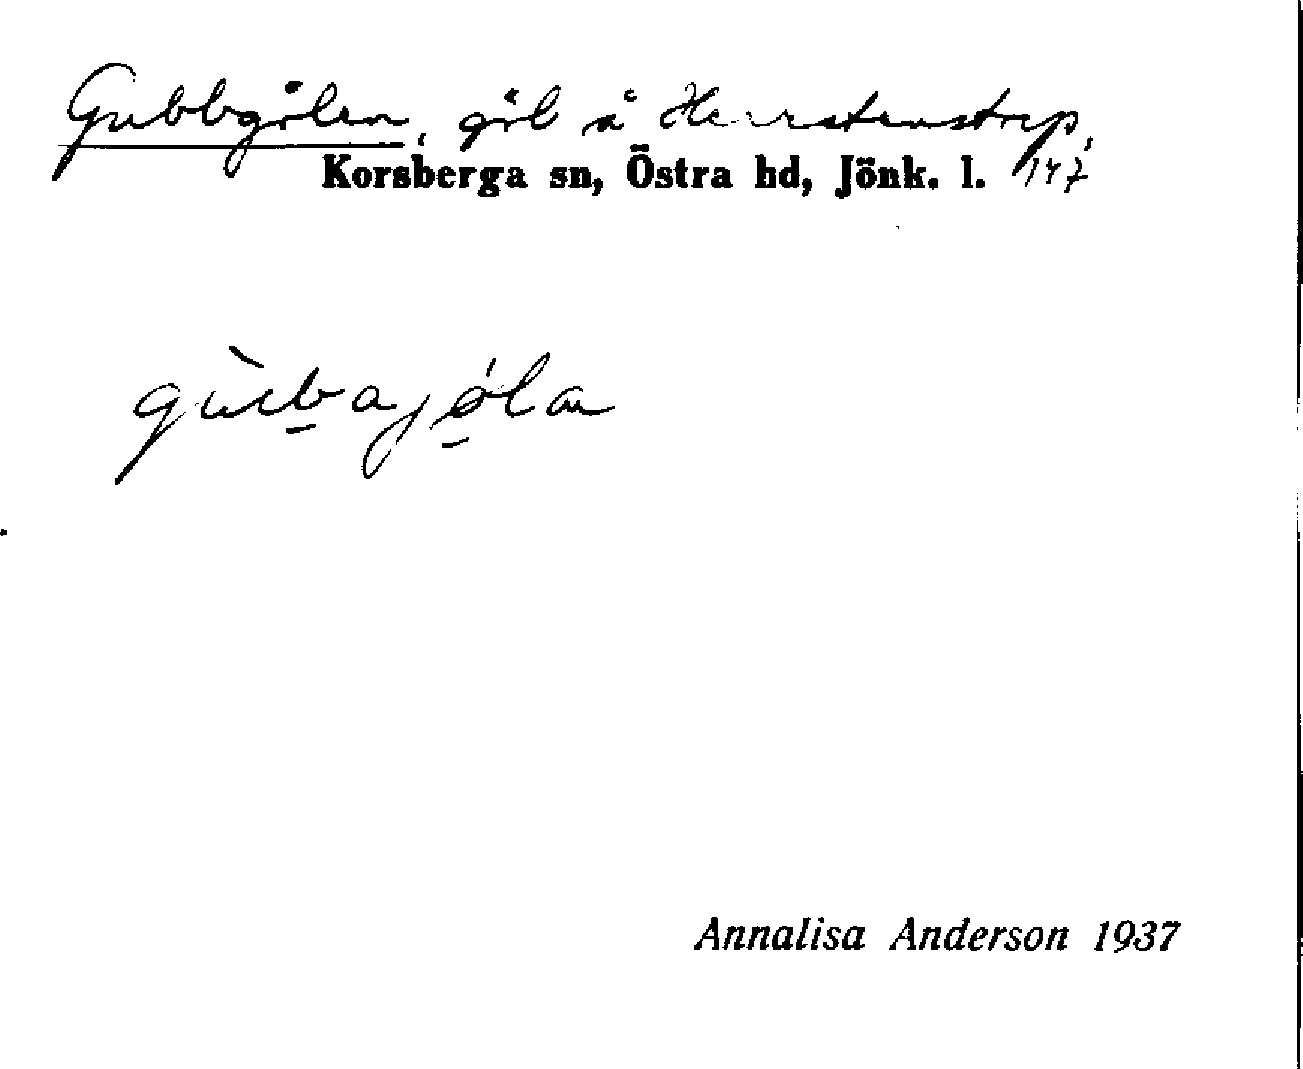 Gubbgölen, göl å Herrstenstorp,
Korsberga sn, Östra hd, Jönk. l. 147
gùbajǿlan
Annalisa Anderson 1937